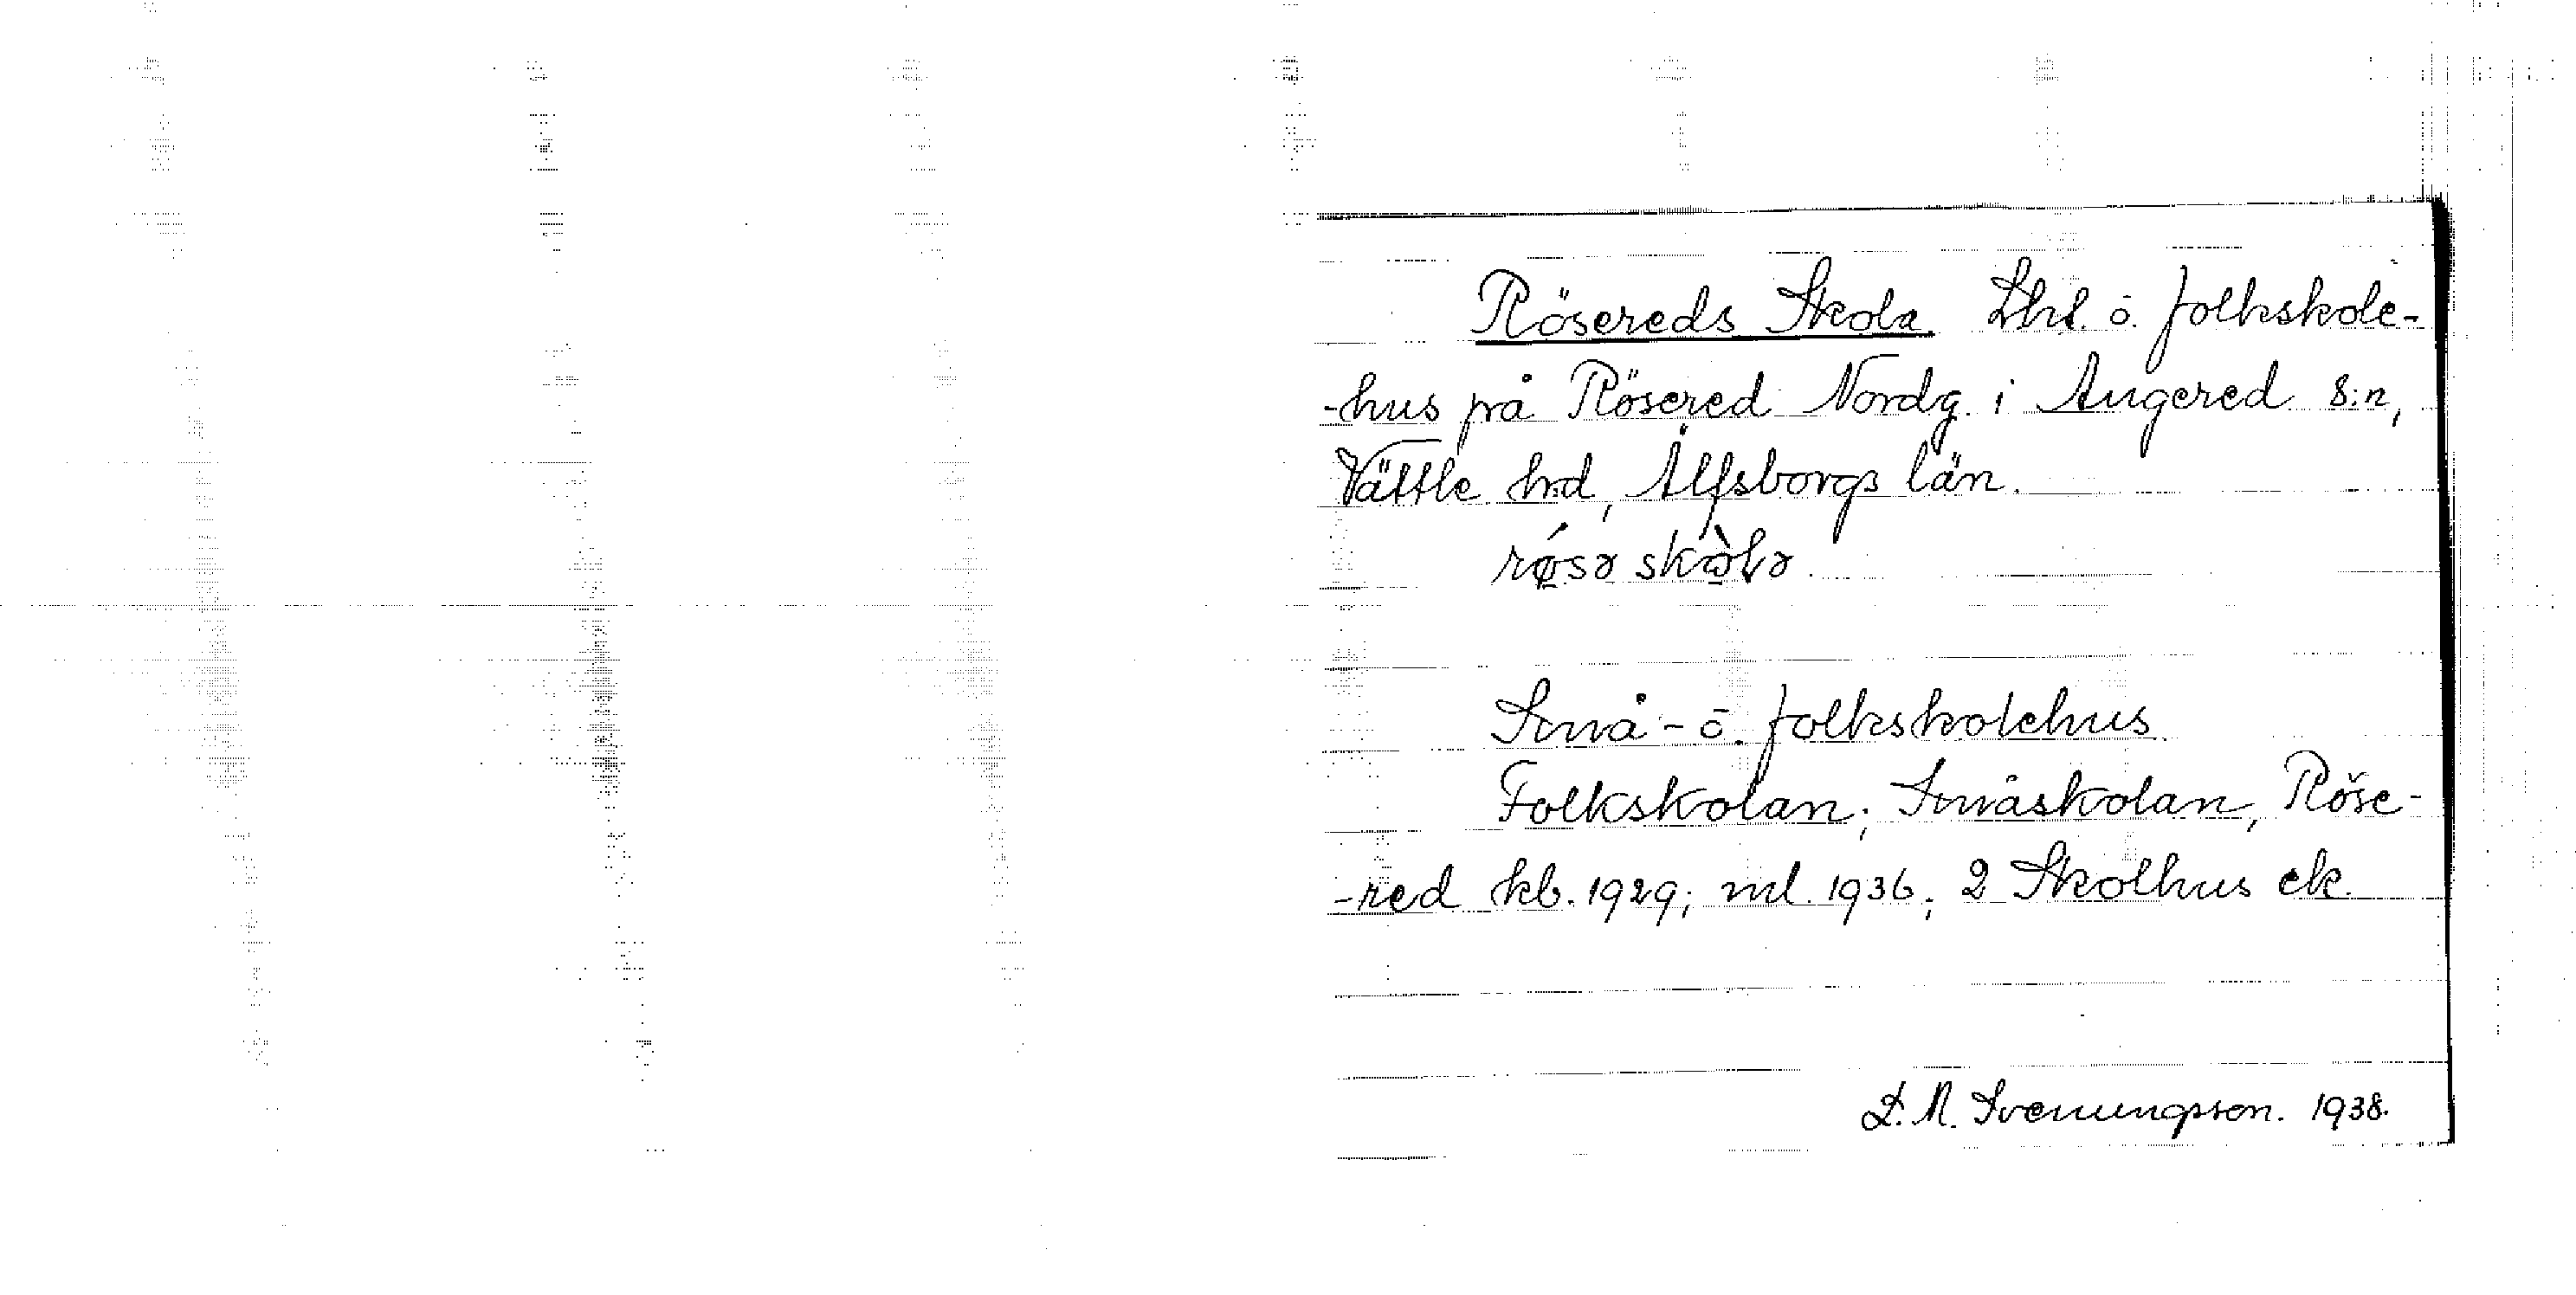 Rösereds Skola. Lht. o. folkskole-
-hus på Rösered Nordg. i Angered s:n,
Vättle hrd, Älfsborgs län.
rǿsə skòlə
Små- o. folkskolehus
Folkskolan; Småskolan, Röse-
-red kb. 1929; ml. 1936; 2 Skolhus ek.
1938.